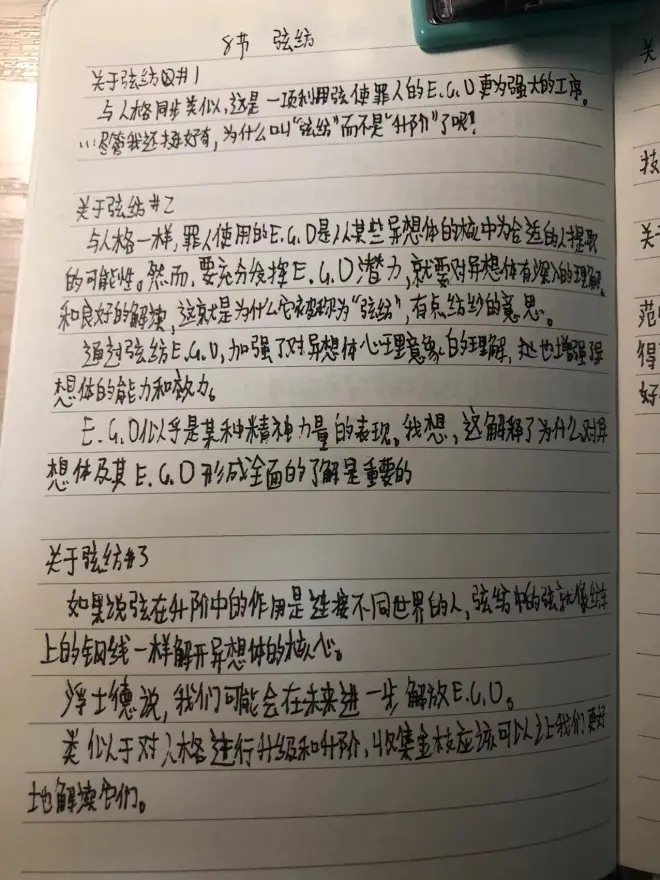 8节 弦纺
关于弦纺#1
与人格同步类似,这是一项利用弦使罪人的E.G.O更为强大的工序。
…尽管我还挺好奇,为什么叫“弦纺”而不是“升阶”了呢!
关于弦纺#2
与人格一样,罪人使用的E.G.O是从某些异想体的核中为合适的人提取
的可能性。然而,要充分发挥E.G.O潜力,就要对异想体有深入的理解
和良好的解读,这就是为什么它被称为“弦纺”,有点纺纱的意思。
通过弦纺E.G.O,加强了对异想体心理意象的理解,也增强异
想体的能力和效力。
E.G.O似乎是某种精神力量的表现。我想,这解释了为什么对异
想体及其E.G.O形成全面的了解是重要的
关于弦纺#3
如果说弦在升阶中的作用是连接不同世界的人,弦纺中的弦就像纺车
上的钢线一样解开异想体的核心。
浮士德说,我们可能会在未来进一步解放E.G.O。
类似于对人格进行升级和升阶,收集金枝应该可以让我们更好
地解读它们。
关
技
关
范
得
好